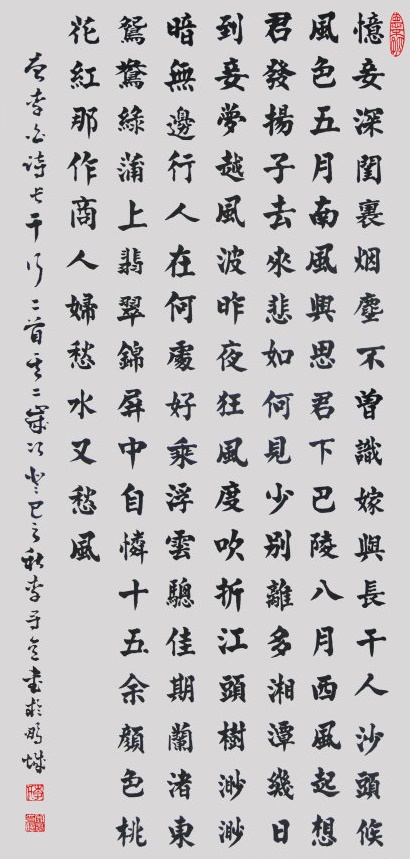 憶妾深閨裏烟塵不曾識嫁與長干人沙頭候
風色五月南風興思君下巴陵八月西風起想
君發揚子去來悲如何見少別離多湘潭幾日
到妾夢越風波昨夜狂風度吹折江頭樹渺渺
暗無邊行人在何處好乘浮雲驄佳期蘭渚東
鴛鴦綠蒲上翡翠錦屏中自憐十五余顏色桃
花紅那作商人婦愁水又愁風
李白詩長干行二首其二歲次癸巳之秋李守書於鵬城